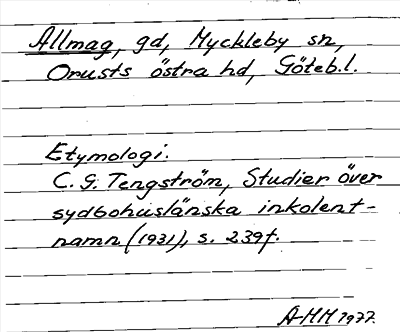 Allmag, gd, Myckleby sn,
Orusts östra hd, Göteb.l.
Etymologi.
C. G. Tengström, Studier över
sydbohuslänska inkolent-
namn (1931), s. 239f.
A-MH 1977.